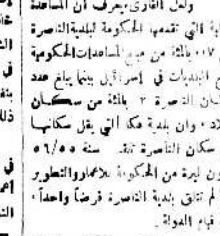 ولعل القارئ يعرف ان المساعدة
ية التي تقدمها الحكومة لبلدية الناصرة
بالمئة من مبلغ المساعدات الحكومية
البلديات في اسرائيل بينما يبلغ عدد
ان الناصرة ٢ بالمئة من سكان
لاد . وان بلدية عكا التي يقل سكانها
سكان الناصرة سنة ٥٦/٥٥
ون ليرة من الحكومة للاعمار والتطوير
لم تتلق بلدية الناصرة قرضاً واحداً .
قيام الدولة .
في
ذلك
في